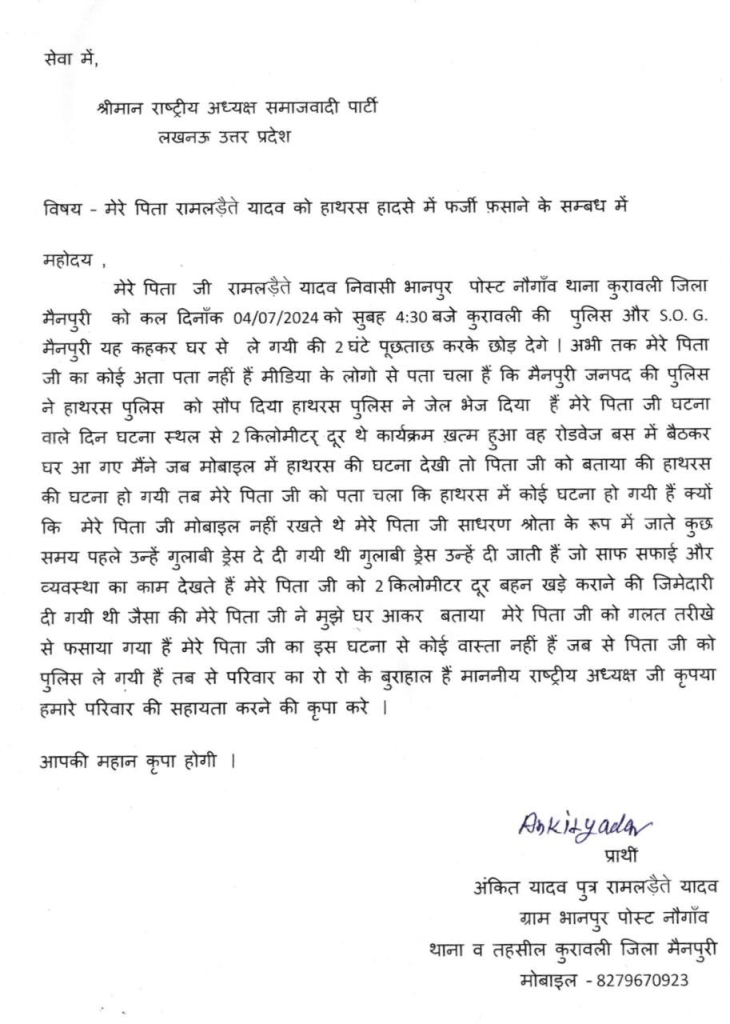 सेवा में,
श्रीमान राष्ट्रीय अध्यक्ष समाजवादी पार्टी
लखनऊ उत्तर प्रदेश
विषय - मेरे पिता रामलड़ैते यादव को हाथरस हादसे में फर्जी फ़साने के सम्बध में
महोदय ,
मेरे पिता जी रामलड़ैते यादव निवासी भानपुर पोस्ट नौगाँव थाना कुरावली जिला
मैनपुरी को कल दिनाँक 04/07/2024 को सुबह 4:30 बजे कुरावली की पुलिस और S.O.G.
मैनपुरी यह कहकर घर से ले गयी की 2 घंटे पूछताछ करके छोड़ देगे |अभी तक मेरे पिता
जी का कोई अता पता नहीं हैं मीडिया के लोगो से पता चला हैं कि मैनपुरी जनपद की पुलिस
ने हाथरस पुलिस को सौप दिया हाथरस पुलिस ने जेल भेज दिया हैं मेरे पिता जी घटना
वाले दिन घटना स्थल से 2 किलोमीटर् दूर थे कार्यक्रम ख़त्म हुआ वह रोडवेज बस में बैठकर
घर आ गए मैंने जब मोबाइल में हाथरस की घटना देखी तो पिता जी को बताया की हाथरस
की घटना हो गयी तब मेरे पिता जी को पता चला कि हाथरस में कोई घटना हो गयी हैं क्यों
कि मेरे पिता जी मोबाइल नहीं रखते थे मेरे पिता जी साधरण श्रोता के रूप में जाते कुछ
समय पहले उन्हें गुलाबी ड्रेस दे दी गयी थी गुलाबी ड्रेस उन्हें दी जाती हैं जो साफ सफाई और
व्यवस्था का काम देखते हैं मेरे पिता जी को 2 किलोमीटर दूर बहन खड़े कराने की जिमेदारी
दी गयी थी जैसा की मेरे पिता जी ने मुझे घर आकर बताया मेरे पिता जी को गलत तरीखे
से फसाया गया हैं मेरे पिता जी का इस घटना से कोई वास्ता नहीं हैं जब से पिता जी को
पुलिस ले गयी हैं तब से परिवार का रो रो के बुराहाल हैं माननीय राष्ट्रीय अध्यक्ष जी कृपया
हमारे परिवार की सहायता करने की कृपा करे |
आपकी महान कृपा होगी |
Ankityadav
प्रार्थी
अंकित यादव पुत्र रामलड़ैते यादव
ग्राम भानपुर पोस्ट नौगाँव
थाना व तहसील कुरावली जिला मैनपुरी
मोबाइल - 8279670923